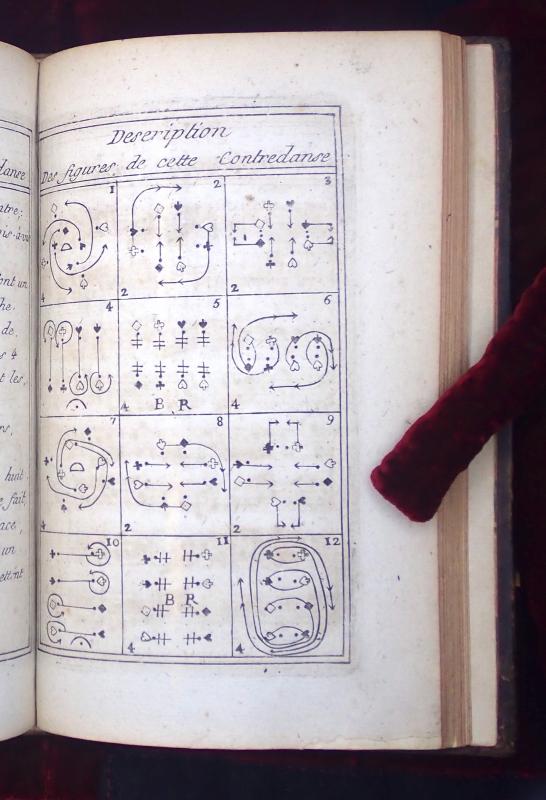 Description
Des figures de cette Contredanse
1 2 3
4 2 2
4 5 6
4 B R 4
7 8 9
4 2 2
10 11 12
B R
4 4
danse
ntre;
ns-à-vi
ont un
he.
de.
s 4
t les,
rs,
huit
e fait,
ace,
un
ettent